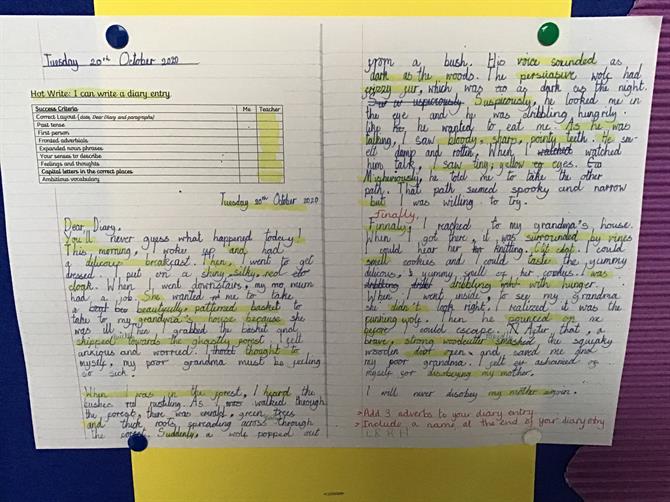 Tuesday 20th October 2020
Hot Write: I can write a diary entry.
Success Criteria Me Teacher
Correct Layout (date, Dear Diary and paragraphs)
Past tense
First person
Fronted adverbials
Expanded noun phrases
Your senses to describe
Feelings and thoughts
Capital letters in the correct places
Ambitious vocabulary
Tuesday 20th October 2020
Dear Diary,
You'll never guess what happened today!
This morning, I woke up and had
a delicious breakfast. Then, I went to get
dressed. I put on a shiny, silky, red
cloak. When I went downstairs, my mum
had a job. She wanted me to take
a beautifully, patterned basket to
take to my grandma's house because she
was ill. Then I grabbed the basket and
skipped towards the ghostly forest. I felt
anxious and worried. I thought to
myself, my poor grandma must be feeling
so sick.
When I was in the forest, I heard the
bushes rustling. As I walked through
the forest, there was emerald, green trees
and thick roots spreading across through
the forest. Suddenly, a wolf popped out
from a bush. His voice sounded as
dark as the woods. The persuasive wolf had
fur, which was as dark as the night.
Suspiciously, he looked me in
the eye, and he was dribbling hungrily
like he wanted to eat me. As he was
talking, I saw bloody, sharp, pointy teeth. He
damp and rotten. When I watched
him talk, I saw tiny, yellow eyes.
he told me to take the other
path. That path seemed spooky and narrow
but I was willing to try.
Finally,
Finnaly, I reached to my grandma's house.
When I got there, it was surrounded by vines
I could hear her knitting. I could
smell cookies and I could taste the yummy
delicous, yummy smell of her cookys. I was
dribbling with hunger.
When I went inside, to see my Grandma
she didn't look right. I realized it was the
cunning wolf. Then he pounced on me
before I could escape. After that, a
brave, strong woodcutter smashed the squeaky
wooden door open and saved me and
my poor grandma. I felt so ashamed of
myself for disobeying my mother.
I will never disobey my mother again.
> Add 3 adverbs to your diary entry
> Include a name at the end of your diary entry